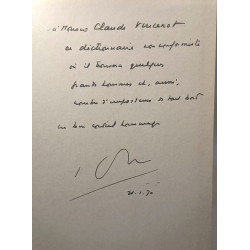 à Monsieur Claude Vincenot
ce dictionnaire non conformiste
où il trouvera quelques
grands hommes et, aussi,
nombre d'imposteurs de tout
un bien cordial hommage